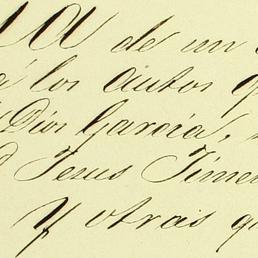 de un
á los autos
Dios García,
Jesus Jimen
y otras